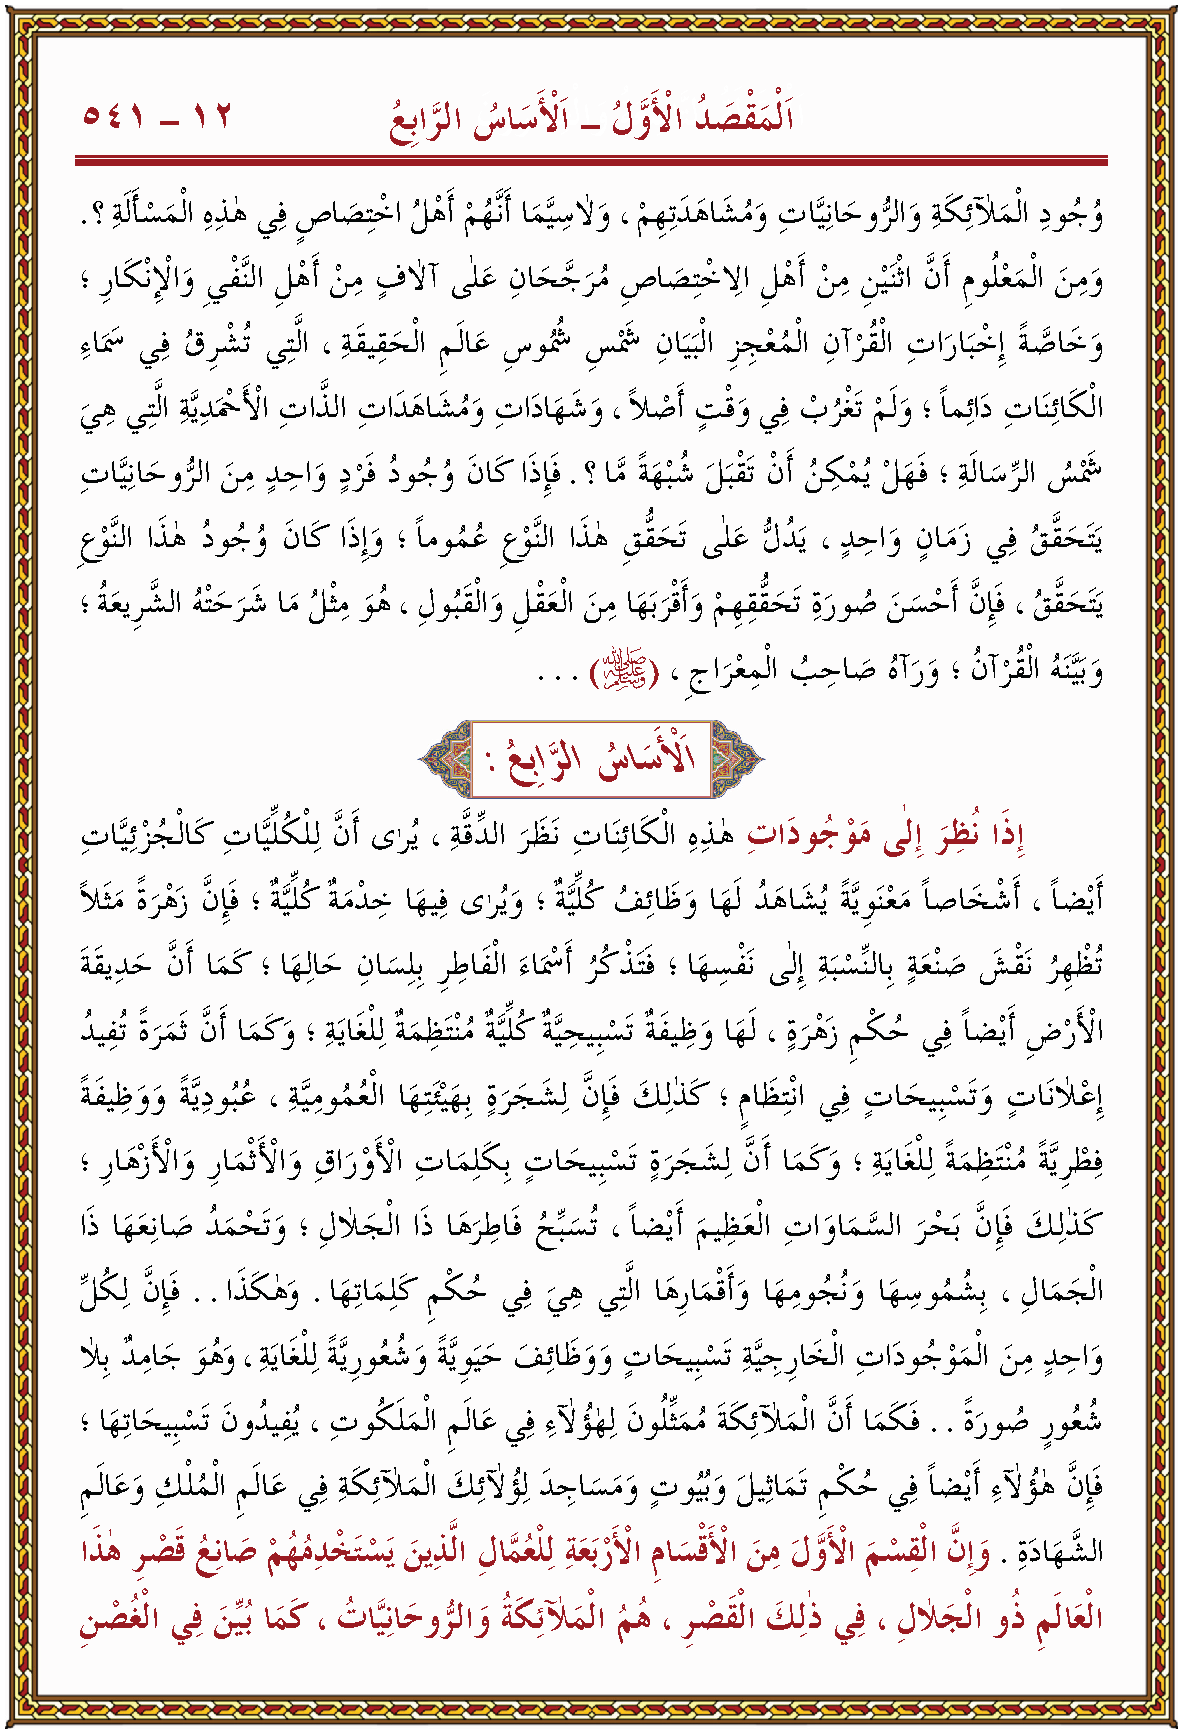 اَلْمَقْصَدُ الْأَوَّلُ ـ اَلْأَسَاسُ الرَّابِعُ ١٢ ـ ٥٤١
وُجُودِ الْمَلٰآئِكَةِ وَالرُّوحَانِيَّاتِ وَمُشَاهَدَتِهِمْ ، وَلاٰسِيَّمَا أَنَّهُمْ أَهْلُ اخْتِصَاصٍ فِي هٰذِهِ الْمَسْأَلَةِ ؟ .
وَمِنَ الْمَعْلُومِ أَنَّ اثْنَيْنِ مِنْ أَهْلِ الِاخْتِصَاصِ مُرَجَّحَانِ عَلٰى آلاٰفٍ مِنْ أَهْلِ النَّفْيِ وَالْإِنْكَارِ ؛
وَخَاصَّةً إِخْبَارَاتِ الْقُرْآنِ الْمُعْجِزِ الْبَيَانِ شَمْسِ شُمُوسِ عَالَمِ الْحَقِيقَةِ ، الَّتِي تُشْرِقُ فِي سَمَاءِ
الْكَائِنَاتِ دَائِماً ؛ وَلَمْ تَغْرُبْ فِي وَقْتٍ أَصْلاً ، وَشَهَادَاتِ وَمُشَاهَدَاتِ الذَّاتِ الْأَحْمَدِيَّةِ الَّتِي هِيَ
شَمْسُ الرِّسَالَةِ ؛ فَهَلْ يُمْكِنُ أَنْ تَقْبَلَ شُبْهَةً مَّا ؟ . فَإِذَا كَانَ وُجُودُ فَرْدٍ وَاحِدٍ مِنَ الرُّوحَانِيَّاتِ
يَتَحَقَّقُ فِي زَمَانٍ وَاحِدٍ ، يَدُلُّ عَلٰى تَحَقُّقِ هٰذَا النَّوْعِ عُمُوماً ؛ وَإِذَا كَانَ وُجُودُ هٰذَا النَّوْعِ
يَتَحَقَّقُ ، فَإِنَّ أَحْسَنَ صُورَةِ تَحَقُّقِهِمْ وَأَقْرَبَهَا مِنَ الْعَقْلِ وَالْقَبُولِ ، هُوَ مِثْلُ مَا شَرَحَتْهُ الشَّرِيعَةُ ؛
وَبَيَّنَهُ الْقُرْآنُ ؛ وَرَآهُ صَاحِبُ الْمِعْرَاجِ ، (ﷺ) . . .
اَلْأَسَاسُ الرَّابِعُ :
إِذَا نُظِرَ إِلٰى مَوْجُودَاتِ هٰذِهِ الْكَائِنَاتِ نَظَرَ الدِّقَّةِ ، يُرٰى أَنَّ لِلْكُلِّيَّاتِ كَالْجُزْئِيَّاتِ
أَيْضاً ، أَشْخَاصاً مَعْنَوِيَّةً يُشَاهَدُ لَهَا وَظَائِفُ كُلِّيَّةٌ ؛ وَيُرٰى فِيهَا خِدْمَةٌ كُلِّيَّةٌ ؛ فَإِنَّ زَهْرَةً مَثَلاً
تُظْهِرُ نَقْشَ صَنْعَةٍ بِالنِّسْبَةِ إِلٰى نَفْسِهَا ؛ فَتَذْكُرُ أَسْمَاءَ الْفَاطِرِ بِلِسَانِ حَالِهَا ؛ كَمَا أَنَّ حَدِيقَةَ
الْأَرْضِ أَيْضاً فِي حُكْمِ زَهْرَةٍ ، لَهَا وَظِيفَةٌ تَسْبِيحِيَّةٌ كُلِّيَّةٌ مُنْتَظِمَةٌ لِلْغَايَةِ ؛ وَكَمَا أَنَّ ثَمَرَةً تُفِيدُ
إِعْلاٰنَاتٍ وَتَسْبِيحَاتٍ فِي انْتِظَامٍ ؛ كَذٰلِكَ فَإِنَّ لِشَجَرَةٍ بِهَيْئَتِهَا الْعُمُومِيَّةِ ، عُبُودِيَّةً وَوَظِيفَةً
فِطْرِيَّةً مُنْتَظِمَةً لِلْغَايَةِ ؛ وَكَمَا أَنَّ لِشَجَرَةٍ تَسْبِيحَاتٍ بِكَلِمَاتِ الْأَوْرَاقِ وَالْأَثْمَارِ وَالْأَزْهَارِ ؛
كَذٰلِكَ فَإِنَّ بَحْرَ السَّمَاوَاتِ الْعَظِيمَ أَيْضاً ، تُسَبِّحُ فَاطِرَهَا ذَا الْجَلاٰلِ ؛ وَتَحْمَدُ صَانِعَهَا ذَا
الْجَمَالِ ، بِشُمُوسِهَا وَنُجُومِهَا وَأَقْمَارِهَا الَّتِي هِيَ فِي حُكْمِ كَلِمَاتِهَا . وَهٰكَذَا . . فَإِنَّ لِكُلِّ
وَاحِدٍ مِنَ الْمَوْجُودَاتِ الْخَارِجِيَّةِ تَسْبِيحَاتٍ وَوَظَائِفَ حَيَوِيَّةً وَشُعُورِيَّةً لِلْغَايَةِ ، وَهُوَ جَامِدٌ بِلاٰ
شُعُورٍ صُورَةً . . فَكَمَا أَنَّ الْمَلٰآئِكَةَ مُمَثِّلُونَ لِهٰؤُلٰآءِ فِي عَالَمِ الْمَلَكُوتِ ، يُفِيدُونَ تَسْبِيحَاتِهَا ؛
فَإِنَّ هٰؤُلٰآءِ أَيْضاً فِي حُكْمِ تَمَاثِيلَ وَبُيُوتٍ وَمَسَاجِدَ لِأُولٰئِكَ الْمَلٰآئِكَةِ فِي عَالَمِ الْمُلْكِ وَعَالَمِ
الشَّهَادَةِ . وَإِنَّ الْقِسْمَ الْأَوَّلَ مِنَ الْأَقْسَامِ الْأَرْبَعَةِ لِلْعُمَّالِ الَّذِينَ يَسْتَخْدِمُهُمْ صَانِعُ قَصْرِ هٰذَا
الْعَالَمِ ذُو الْجَلاٰلِ ، فِي ذٰلِكَ الْقَصْرِ ، هُمُ الْمَلٰآئِكَةُ وَالرُّوحَانِيَّاتُ ، كَمَا بُيِّنَ فِي الْغُصْنِ